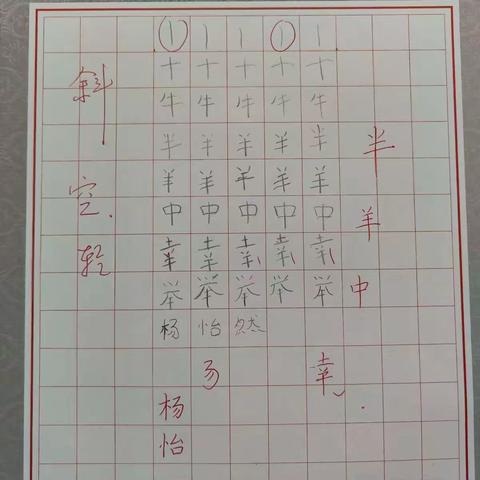 丨丨丨丨丨
十十十十十
牛牛牛牛牛
半半半半半
羊羊羊羊羊
中中中中中
幸幸幸幸幸
举举举举举
杨怡然
斜
空
轻
半
羊
中
幸
杨
怡